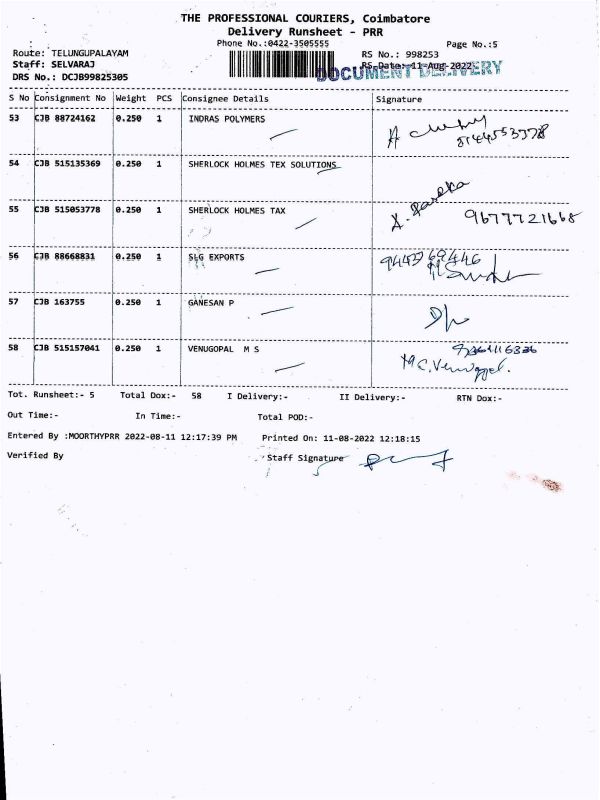 THE PROFESSIONAL COURIERS, Coimbatore
Delivery Runsheet - PRR
Phone No.:0422-3505555
Page No.:5
Route: TELUNGUPALAYAM
RS No.: 998253
Staff: SELVARAJ
RS Date: 11-Aug-2022
DOCUMENT DELIVERY
DRS No.: DCJB99825305
S No Consignment No Weight PCS Consignee Details Signature
53 CJB 88724162 0.250 1 INDRAS POLYMERS
54 CJB 515135369 0.250 1 SHERLOCK HOLMES TEX SOLUTIONS
55 CJB 515053778 0.250 1 SHERLOCK HOLMES TAX 9677721668
56 CJB 88668831 0.250 1 SLG EXPORTS
57 CJB 163755 0.250 1 GANESAN P
58 CJB 515157041 0.250 1 VENUGOPAL M S
M.C.Venugopal.
Tot. Runsheet:- 5 Total Dox:- 58 I Delivery:- II Delivery:- RTN Dox:-
Out Time:- In Time:- Total POD:-
Entered By :MOORTHYPRR 2022-08-11 12:17:39 PM Printed On: 11-08-2022 12:18:15
Verified By Staff Signature